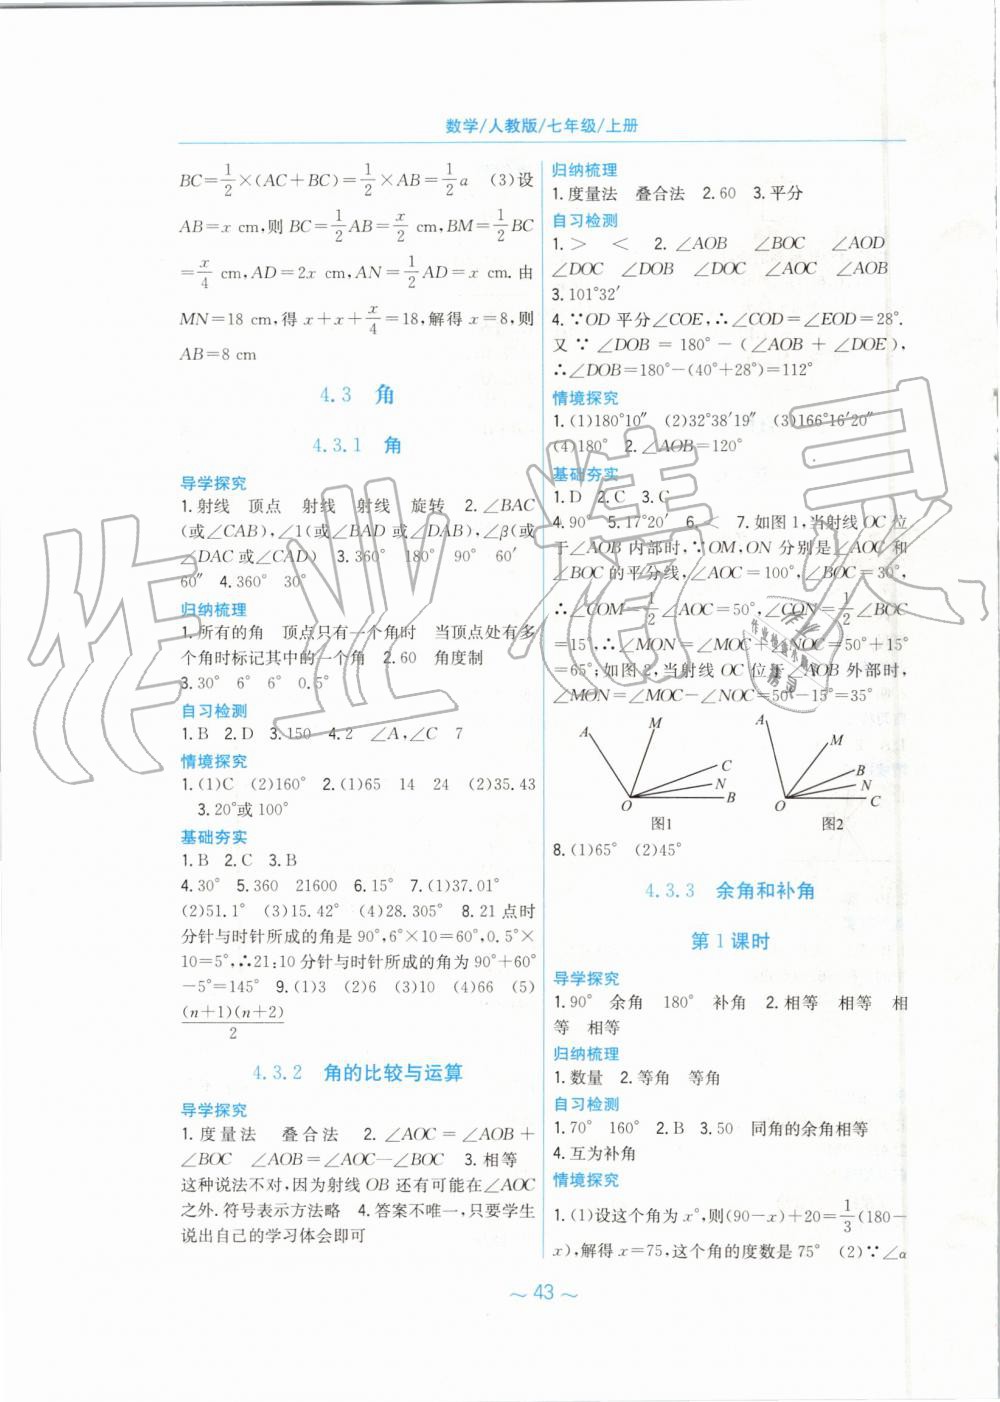 数学/人教版/七年级/上册
BC=1/2×(AC+BC)=1/2×AB=1/2a (3)设
AB=x cm,则 BC=1/2AB=x/2 cm,BM=1/2BC
=x/4 cm,AD=2x cm,AN=1/2AD=x cm. 由
MN=18 cm,得 x+x+x/4=18,解得 x=8,则
AB=8 cm
4.3 角
4.3.1 角
导学探究
1.射线 顶点 射线 射线 旋转 2.∠BAC
(或∠CAB),∠1(或∠BAD 或∠DAB),∠β(或
∠DAC 或∠CAD) 3.360° 180° 90° 60′
60″ 4.360° 30°
归纳梳理
1.所有的角 顶点只有一个角时 当顶点处有多
个角时标记其中的一个角 2.60 角度制
3.30° 6° 6° 0.5°
自习检测
1.B 2.D 3.150 4.2 ∠A,∠C 7
情境探究
1.(1)C (2)160° 2.(1)65 14 24 (2)35.43
3.20°或100°
基础夯实
1.B 2.C 3.B
4.30° 5.360 21600 6.15° 7.(1)37.01°
(2)51.1° (3)15.42° (4)28.305° 8.21 点时
分针与时针所成的角是 90°,6°×10=60°,0.5°×
10=5°,∴21:10 分针与时针所成的角为 90°+60°
-5°=145° 9.(1)3 (2)6 (3)10 (4)66 (5)
(n+1)(n+2)/2
4.3.2 角的比较与运算
导学探究
1.度量法 叠合法 2.∠AOC=∠AOB+
∠BOC ∠AOB=∠AOC—∠BOC 3.相等
这种说法不对,因为射线 OB 还有可能在∠AOC
之外. 符号表示方法略 4.答案不唯一,只要学生
说出自己的学习体会即可
归纳梳理
1.度量法 叠合法 2.60 3.平分
自习检测
1.> < 2.∠AOB ∠BOC ∠AOD
∠DOC ∠DOB ∠DOC ∠AOC ∠AOB
3.101°32′
4.∵OD 平分∠COE,∴∠COD=∠EOD=28°.
又∵∠DOB=180°-(∠AOB+∠DOE),
∴∠DOB=180°-(40°+28°)=112°
情境探究
1.(1)180°10″ (2)32°38′19″ (3)166°16′20″
(4)180° 2.∠AOB=120°
基础夯实
1.D 2.C 3.C
4.90° 5.17°20′ 6.< 7.如图 1,当射线 OC 位
于∠AOB 内部时,∵OM,ON 分别是∠AOC 和
∠BOC 的平分线,∠AOC=100°,∠BOC=30°,
∴∠COM=1/2∠AOC=50°,∠CON=1/2∠BOC
=15°,∴∠MON=∠MOC+∠NOC=50°+15°
=65°;如图 2,当射线 OC 位于∠AOB 外部时,
∠MON=∠MOC-∠NOC=50°-15°=35°
A M C N B O
图1
A M B N C O
图2
8.(1)65° (2)45°
4.3.3 余角和补角
第1课时
导学探究
1.90° 余角 180° 补角 2.相等 相等 相
等 相等
归纳梳理
1.数量 2.等角 等角
自习检测
1.70° 160° 2.B 3.50 同角的余角相等
4.互为补角
情境探究
1.(1)设这个角为 x°,则(90-x)+20=1/3(180-
x),解得 x=75,这个角的度数是 75° (2)∵∠α
~ 43 ~
作业精灵